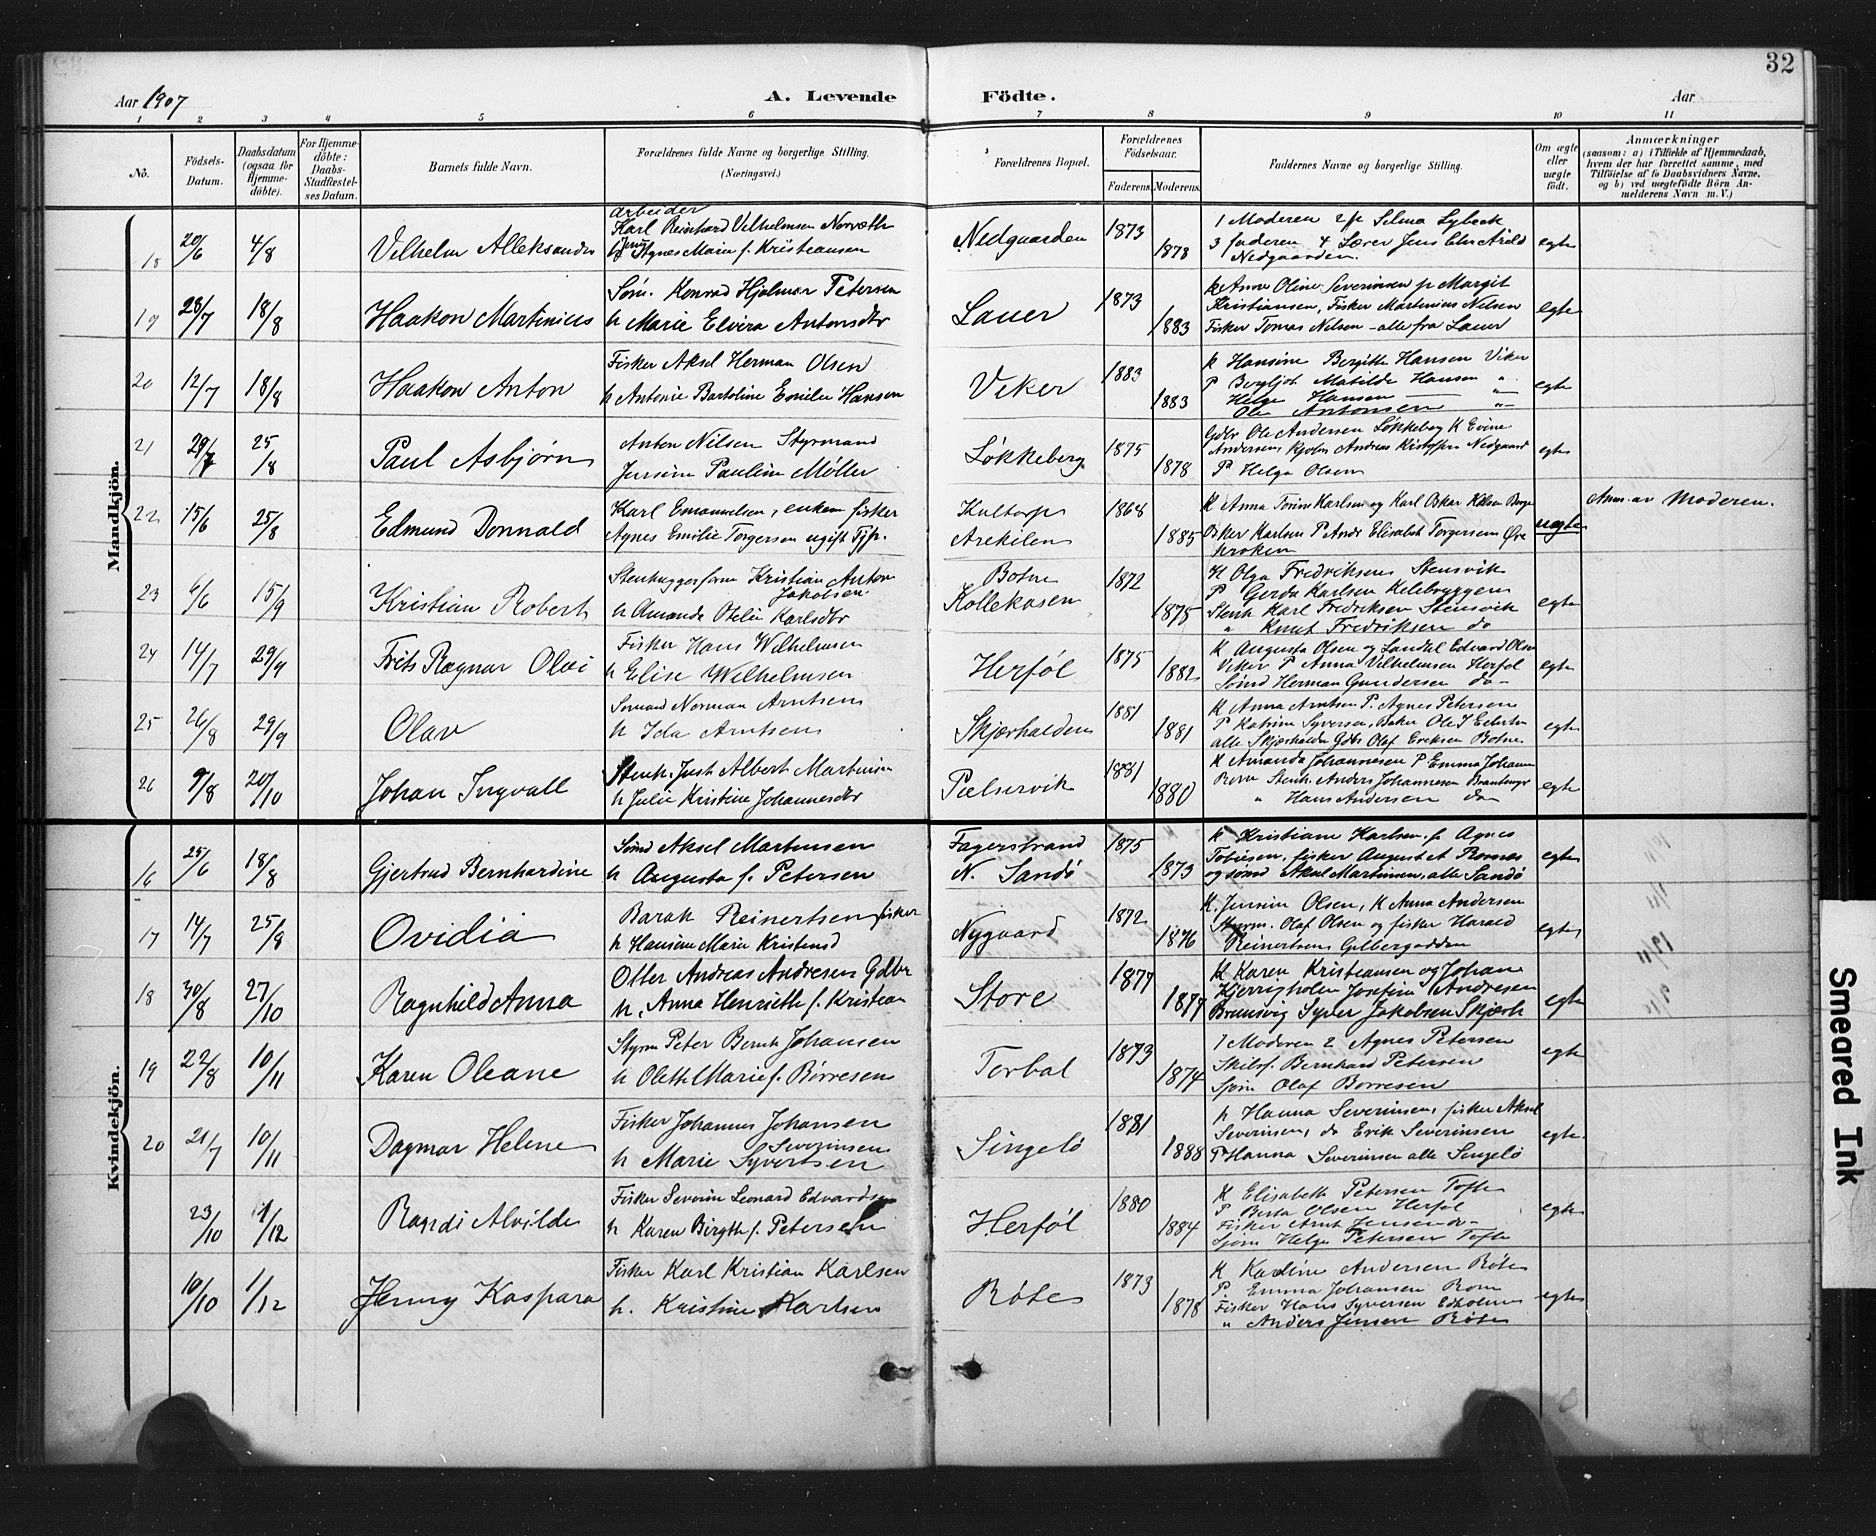 32
Aar 1907
A. Levende Födte.
Aar
1 2 3 4 5 6 7 8 9 10 11
No.
Födsels-Datum.
Daabsdatum (ogsaa for Hjemme-döbte).
For Hjemme-döbte: Daabs-Stadfæstel-ses Datum.
Barnets fulde Navn.
Forældrenes fulde Navne og borgerlige Stilling.
(Næringsvei.)
Forældrenes Bopæl.
Forældrenes Födselsaar.
Faderens. Moderens.
Faddernes Navne og borgerlige Stilling.
Om ægte eller uægte födt.
Anmærkninger
(saasom: a) i Tilfælde af Hjemmedaab, hvem der har forrettet samme, med Tilföielse af to Daabsvidners Navne, og b) ved uægtefödte Börn An-melderens Navn m. V.)
Mandkjön.
18 20/6 4/8 Vilhelm Alleksander
arbeider
Karl Reinhard Vilhelmsen
Agnes Marie f. Kristiansen
Nedgaarden 1873 1878
1 Moderen 2 p Selma Lybeck
3 faderen 4 Lærer Jens
Nedgaarden.
egte
19 28/7 18/8 Haakon Martinius
Søm. Konrad Hjalmar Petersen
h Marie Elvira Antonsdtr
Lauer 1873 1883
k Anne Oline Severinsen p Margit
Kristiansen, Fisker Martinius Nilsen
Fisker Tomas Nilsen - alle fra Lauer
egte
20 12/7 18/8 Haakon Anton
Fisker Aksel Herman Olsen
h Antonie Bartoline Emilie Hansen
Viker 1883 1883
k Hansine Bergitte Hansen Viker
P Bergljot Matilde Hansen "
Helge Hansen "
Ole Antonsen "
egte
21 29/7 25/8 Paul Asbjørn
Anton Nilsen Styrmand
Jensine Pauline Møller
Løkkeberg 1875 1878
Gdbr Ole Andersen Løkkeberg K Evine
Andersen Andreas Nedgaard
P Helga Olsen
egte
22 15/6 25/8 Edmund Donnald
Karl Emanuelsen, enkem fisker
Agnes Emilie Torgersen ugift Tjp.
Kultorp
Arekilen
1868 1885
K Anna Karlsen og Karl Oskar
Oskar Karlsen P Elisabet Torgersen Øve
kroken
uegte
Anm. av Moderen.
23 6/6 15/9 Kristian Robert
Stenhuggerform Kristian Anton
Jakobsen
h Amande Otelie Karlsdtr
Botne
Kollekasen
1872 1875
K Olga Fredriksens Stensvik
P Gerda Karlsen
Stenh Karl Fredriksen Stensvik
" Knut Fredriksen do
egte
24 14/7 29/9 Frits Ragnar Olai
Fisker Hans Wilhelmsen
h Elise Wilhelmsen
Herføl 1875 1882
K Augusta Olsen og Edvard Olsen
Viker P Anna Vilhelmsen Herføl
Sømd Herman Gundersen do
egte
25 26/8 29/9 Olav
Sømand Norman Arntsen
h Ida Arntsen
Skjærhalden 1881 1881
K Anna Arntsen P. Agnes Petersen
P Katrine Syversen, Baker Ole
alle Skjærhalden Gdbr Olaf Eriksen Botne
egte
26 9/8 20/10 Johan Ingvall
Stenh. Just Albert Martinsen
h Julie Kristine Johannesdtr
Pælservik 1881 1880
K Amanda Johannesen P Emma Johansen
Rom Stenh. Anders Johannesen
" Hans Andersen do
egte
Kvindekjön.
16 25/6 18/8 Gjertrud Bernhardine
Sømd Aksel Martinsen
h Augusta f. Petersen
Fagerstrand
N. Sandø
1875 1873
k Kristiane Karlsen. p Agnes
Tobiesen, fisker August
og sømd Aksel Martinsen, alle Sandø
egte
17 14/7 25/8 Ovidia
Barak Reinertsen fisker
h Hansine Marie Kristensd
Nygaard 1872 1876
K. Jensine Olsen, K Anna Andersen
Styrm. Olaf Olsen og fisker Harald
Reinertsen
egte
18 30/8 27/10 Ragnhild Anna
Otter Andreas Andresen Gdbr
h. Anna Henriette f. Kristian
Store 1877 1877
K Karen Kristiansen og Johan
Kjerrigholen Josefine Andresen
Brunsvig Syver Jakobsen Skjærh
egte
19 22/8 10/11 Karen Oleane
Styrm Peter Bernt Johansen
h Olette Marie f. Børresen
Torbal 1873 1874
1 Moderen 2 Agnes Petersen
Skibsf. Bernhard Petersen
Sjøm Olaf Børresen
egte
20 21/7 10/11 Dagmar Helene
Fisker Johannes Johansen
Severinsen
h Marie Syvertsen
Singelø 1881 1888
k Hanna Severinsen, fisker Aksel
Severinsen, do Erik Severinsen
P Hanna Severinsen alle Singelø
egte
23/10 1/12 Randi Alvilde
Fisker Severin Leonard Edvardsen
h Karen Birgitte f. Petersen
Herføl 1880 1884
K Elisabeth Petersen Tofte
P Berta Olsen Herføl
Fisker Arnt Jensen do
Sjøm Helge Petersen Tofte
egte
10/10 1/12 Jenny Kaspara
Fisker Karl Kristian Karlsen
h. Kristine Karlsen
Røte 1873 1878
K Karoline Andersen Røte
P. Emma Johansen Rom
Fisker Hans Syversen Edholmen
" Anders Jensen Røte
egte
Smeared Ink